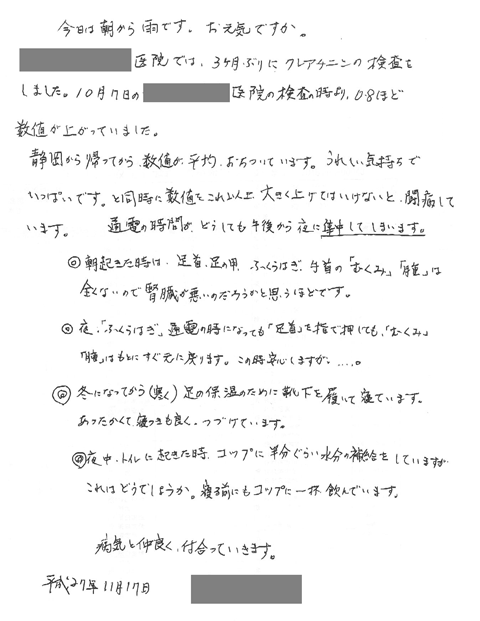 今日は朝から雨です。お元気ですか。
医院では、3ヶ月ぶりにクレアチニンの検査を
しました。10月7日の医院の検査の時より、0.8ほど
数値が上がっていました。
静岡から帰ってから、数値が、平均、おちついています。うれしい気持ちで
いっぱいです。と同時に数値をこれ以上大きく上げてはいけないと、闘病して
います。通電の時間が、どうしても午後から夜に集中してしまいます。
◎朝起きた時は、足首、足の甲、ふくらはぎ、手首の「むくみ」「腫」は
全くないので腎臓が悪いのだろうかと思うほどです。
◎夜、「ふくらはぎ」通電の時になっても「足首」を指で押しても、「むくみ」
「腫」はもとにすぐ元に戻ります。この時安心しますが、……。
◎冬になってから(寒く)足の保温のために靴下を履いて寝ています。
あったかくて寝つきも良く、つづけています。
◎夜中、トイレに起きた時、コップに半分ぐらい水分の補給をしていますが
これはどうでしょうか。寝る前にもコップに一杯飲んでいます。
病気と仲良く、付合っていきます。
平成27年11月17日